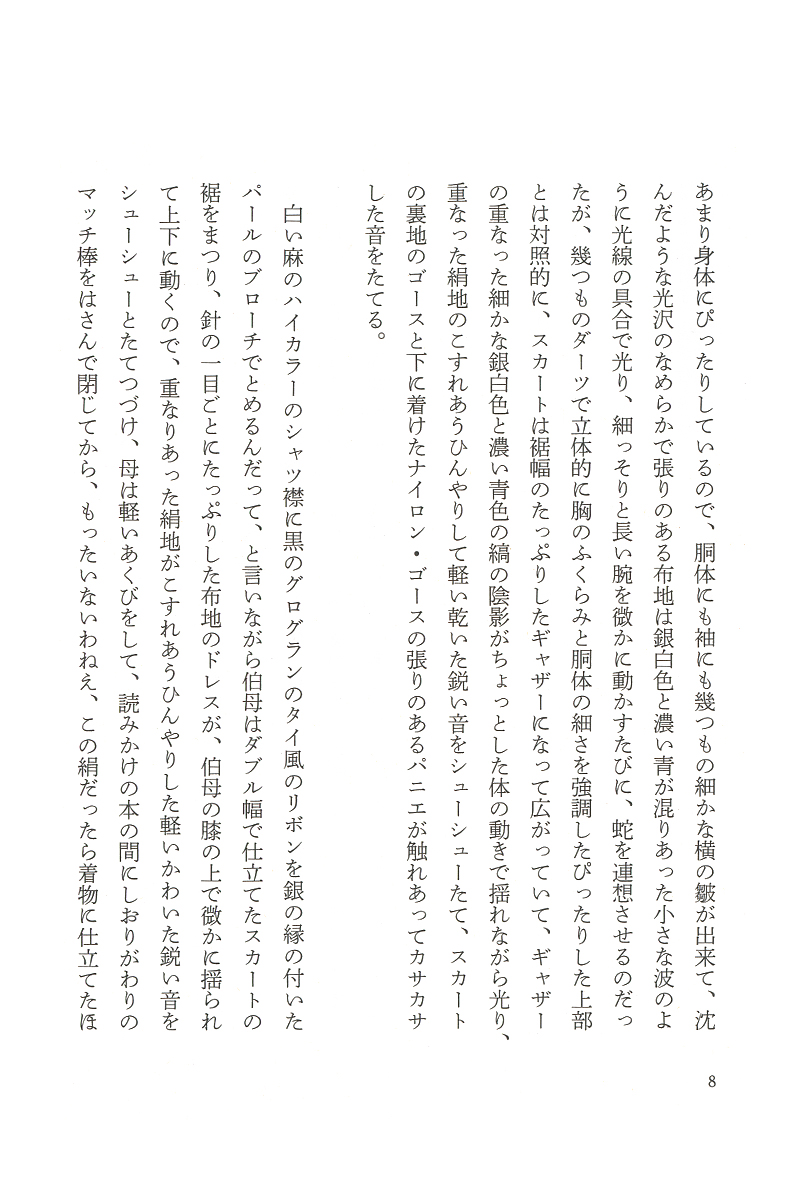 あまり身体にぴったりしているので、胴体にも袖にも幾つもの細かな横の皺が出来て、沈
んだような光沢のなめらかで張りのある布地は銀白色と濃い青が混りあった小さな波のよ
うに光線の具合で光り、細っそりと長い腕を微かに動かすたびに、蛇を連想させるのだっ
たが、幾つものダーツで立体的に胸のふくらみと胴体の細さを強調したぴったりした上部
とは対照的に、スカートは裾幅のたっぷりしたギャザーになって広がっていて、ギャザー
の重なった細かな銀白色と濃い青色の縞の陰影がちょっとした体の動きで揺れながら光り、
重なった絹地のこすれあうひんやりして軽い乾いた鋭い音をシューシューたて、スカート
の裏地のゴースと下に着けたナイロン・ゴースの張りのあるパニエが触れあってカサカサ
した音をたてる。
白い麻のハイカラーのシャツ襟に黒のグログランのタイ風のリボンを銀の縁の付いた
パールのブローチでとめるんだって、と言いながら伯母はダブル幅で仕立てたスカートの
裾をまつり、針の一目ごとにたっぷりした布地のドレスが、伯母の膝の上で微かに揺られ
て上下に動くので、重なりあった絹地がこすれあうひんやりした軽いかわいた鋭い音を
シューシューとたてつづけ、母は軽いあくびをして、読みかけの本の間にしおりがわりの
マッチ棒をはさんで閉じてから、もったいないわねえ、この絹だったら着物に仕立てたほ
8